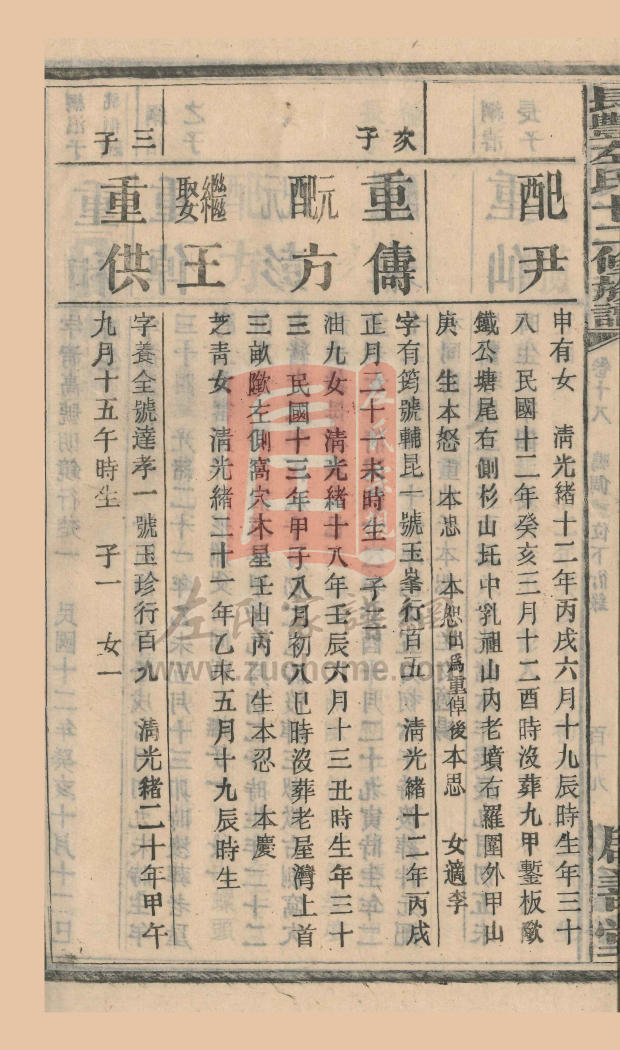 長豐左氏十二修族譜
卷十八
百十九
配尹
申有女 淸光緒十二年丙戌六月十九辰時生年三十
八生民國十二年癸亥三月十二酉時沒葬九甲塹板歘
鐵公塘尾右側杉山瓦中乳祖山內老墳右羅圍外甲山
庚同 生本怒 本恖 本恕出爲重倬後本思 女適李
次子
重儔
字有筠號輔昆一號玉峯行百五 淸光緒十二年丙戌
正月二十十未時生 子二
元配方
油九女 淸光緒十八年壬辰六月十三丑時生年三十
三 民國十三年甲子八月初八巳時沒葬老屋灣上首
三畝歘左側窩穴木星壬山丙 生本忍 本慶
繼娶王
芝靑女 淸光緒二十一年乙未五月十九辰時生
三子
重供
字養全號達孝一號玉珍行百九 淸光緒二十年甲午
九月十五午時生 子一 女一
左氏家譜網
www.zuohome.com